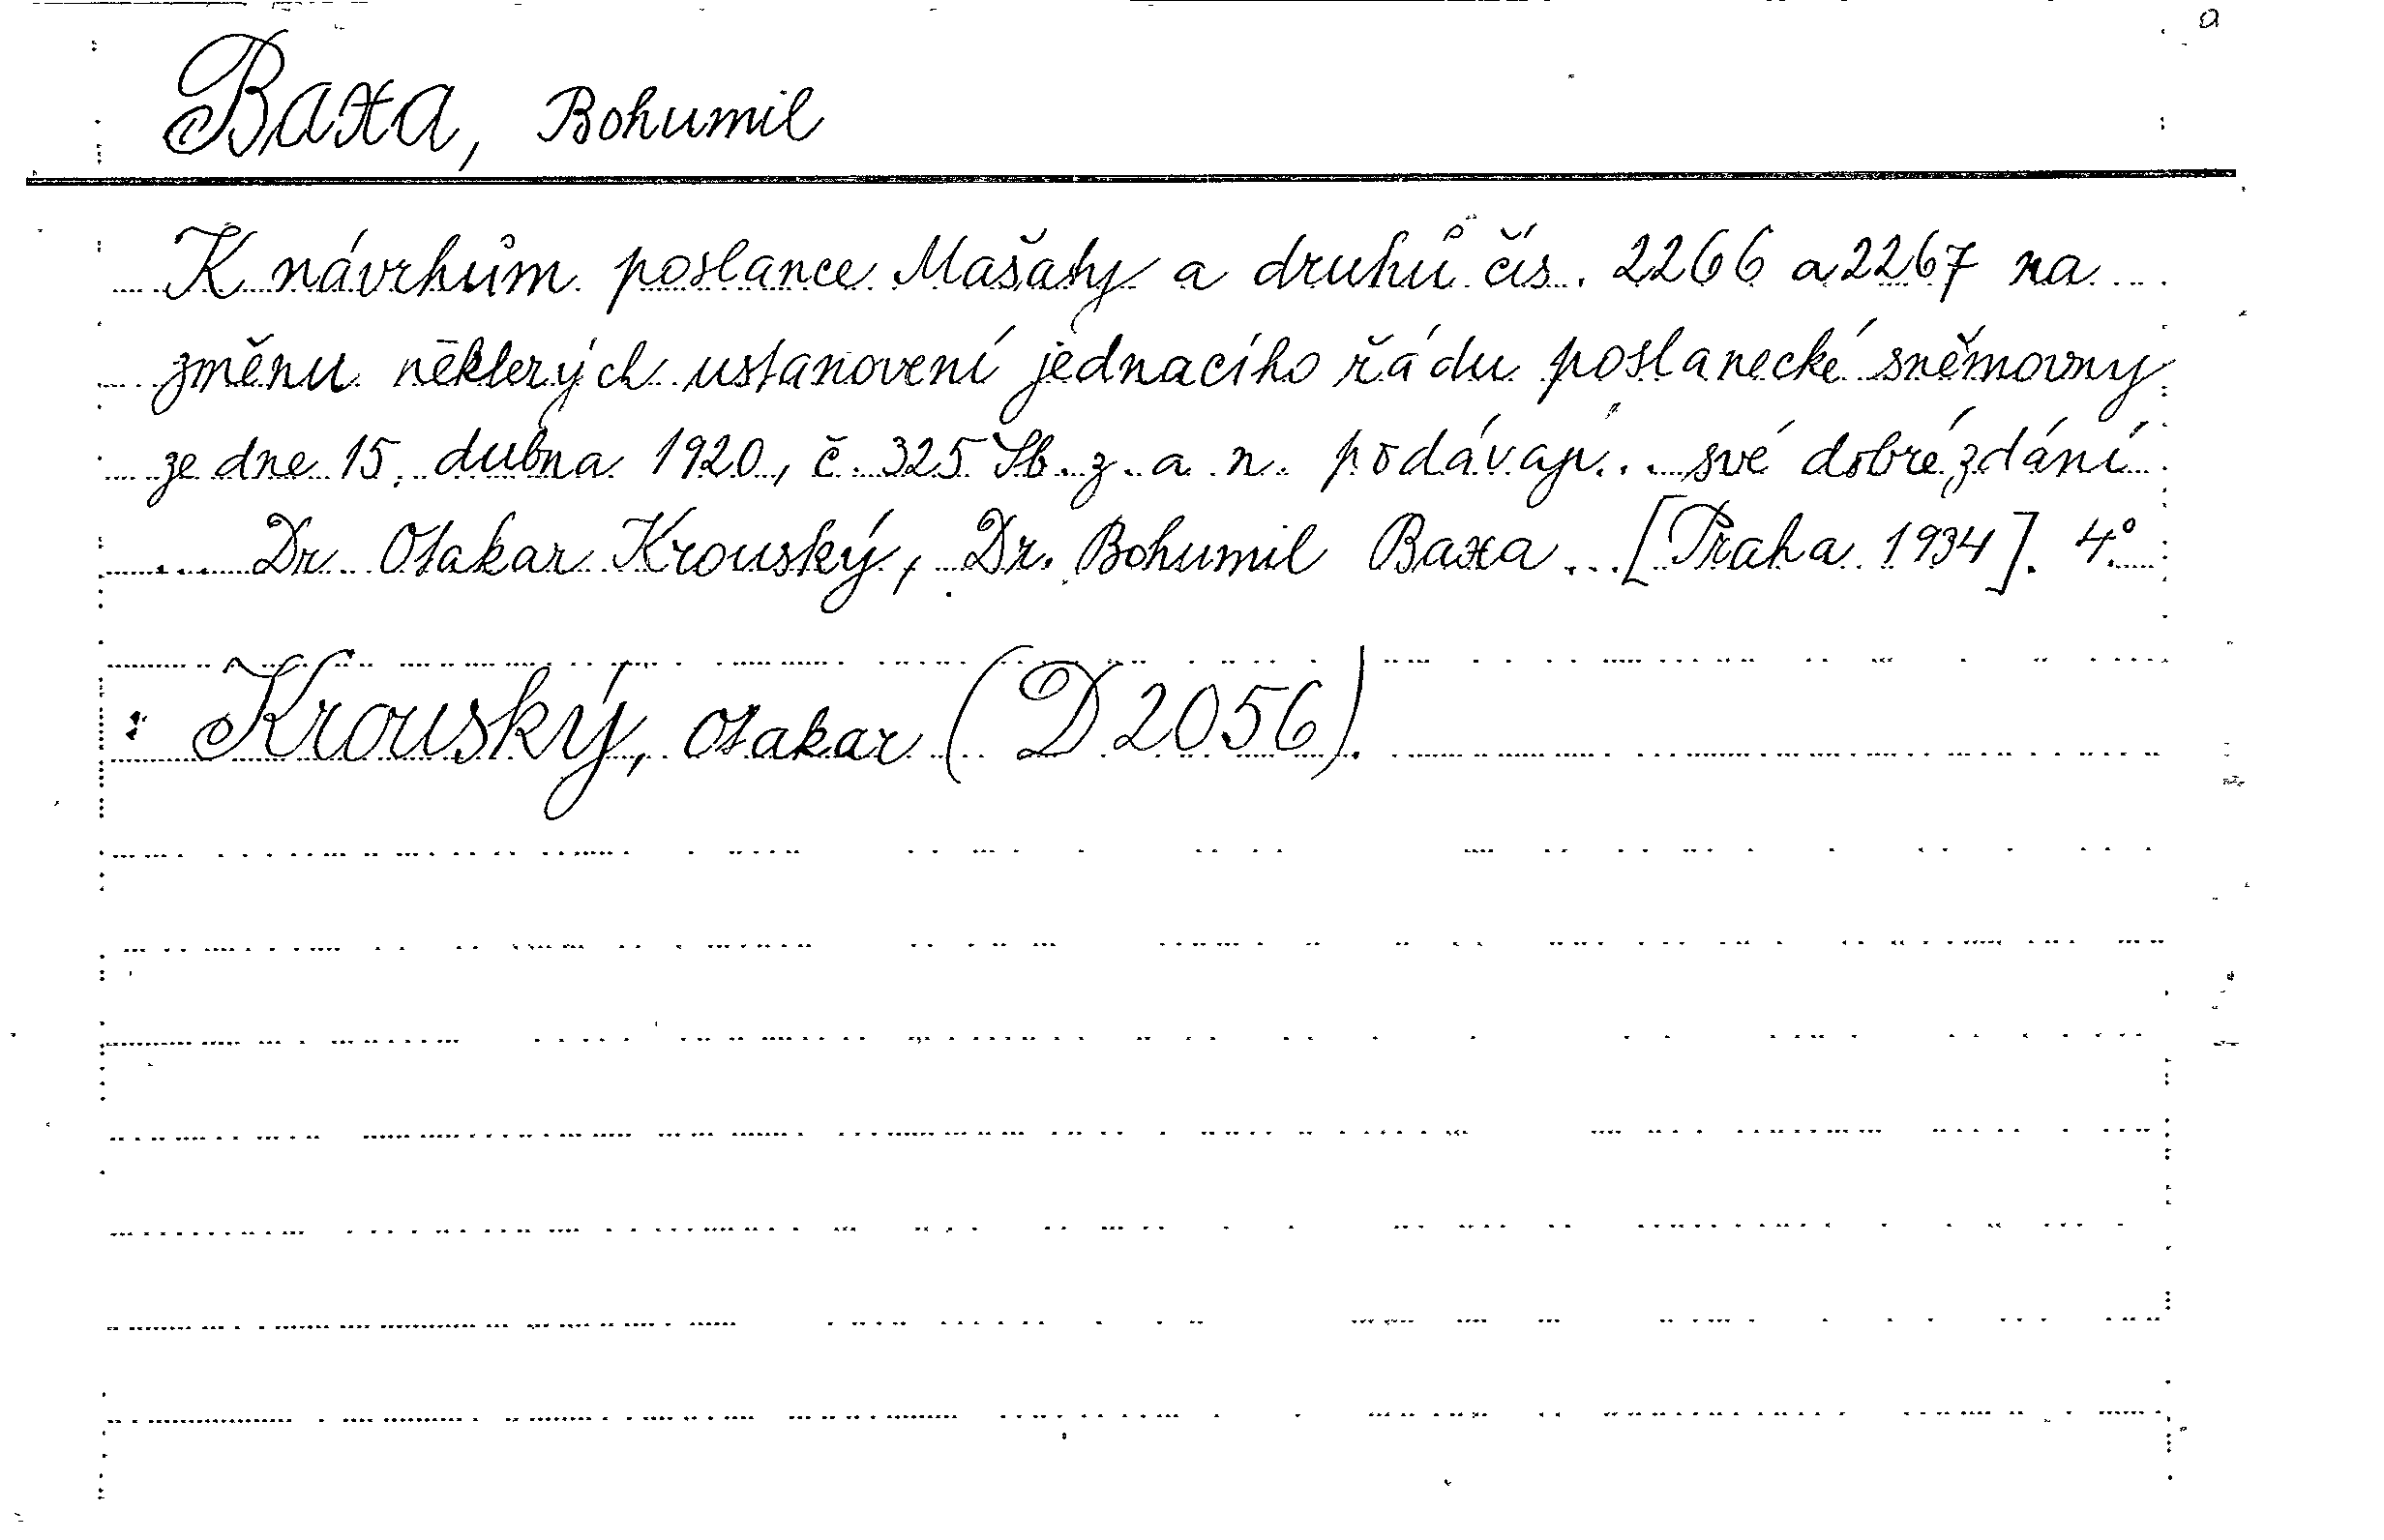 a
Baxa, Bohumil
K návrhům poslance Mašaty a druhů čís. 2266 a 2267 na
změnu některých ustanovení jednacího řádu poslanecké sněmovny
ze dne 15. dubna 1920, č. 325 Sb. z. a n. podávají... své dobrézdání
... Dr. Otakar Krouský, Dr. Bohumil Baxa ... [Praha 1934]. 4°.
: Krouský, Otakar (D 2056).